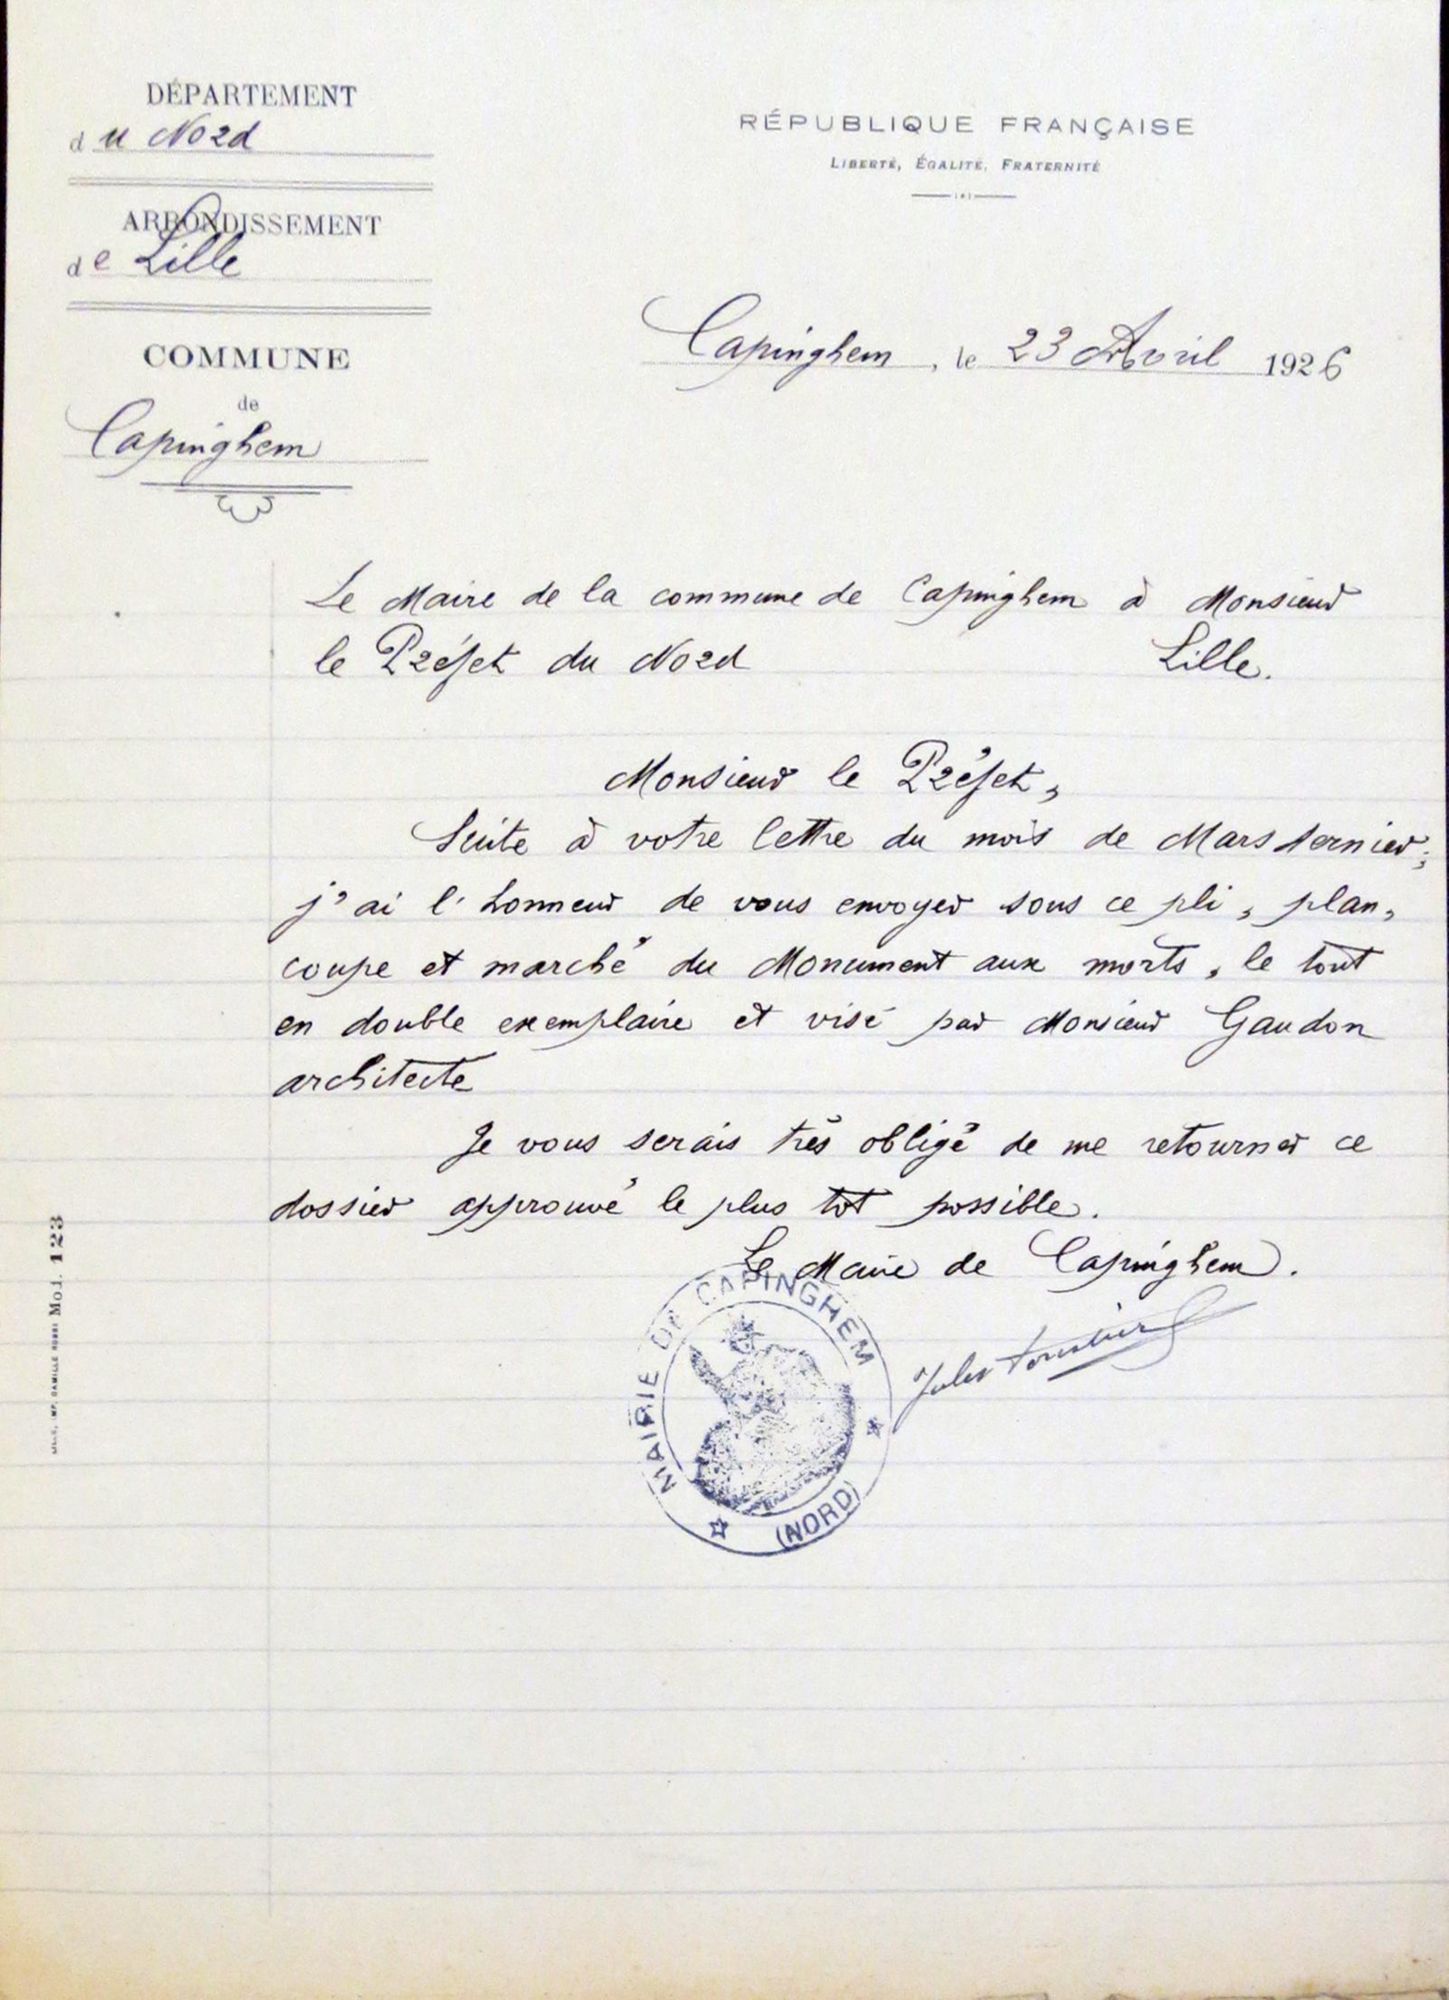 DÉPARTEMENT
du Nord
ARRONDISSEMENT
de Lille
COMMUNE
de
Capinghem
RÉPUBLIQUE FRANÇAISE
LIBERTÉ, ÉGALITÉ, FRATERNITÉ
Capinghem, le 23 Avril 1926
Le Maire de la commune de Capinghem à Monsieur
le Préfet du Nord Lille.
Monsieur le Préfet,
Suite à votre lettre du mois de Mars dernier,
j'ai l'honneur de vous envoyer sous ce pli, plan,
coupe et marché du Monument aux morts, le tout
en double exemplaire et visé par Monsieur Gaudon
architecte
Je vous serais très obligé de me retourner ce
dossier approuvé le plus tot possible.
Le Maire de Capinghem.
Jules
MAIRIE DE CAPINGHEM
(NORD)
IMP. CAMILLE ROBBE Mod. 123